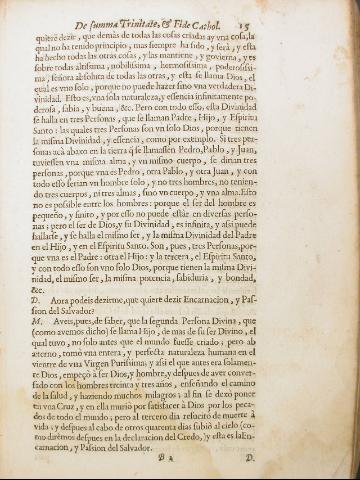 De summa Trinitate, & Fide Cathol. 15
quiere dezir, que demàs de todas las cosas criadas ay vna cosa, la
qual no ha tenido principio, mas siempre ha sido, y serà, y esta
ha hecho todas las otras cosas, y las mantiene, y govierna, y es
sobre todas altissima, nobilissima, hermosissima, poderosissi-
ma, señora absoluta de todas las otras, y esta se llama Dios, el
qual es vno solo, porque no puede hazer sino vna verdadera Di-
vinidad. Esto es, vna sola naturaleza, y essencia infinitamente po-
derosa, sabia, y buena, &c. Pero con todo esso, esta Divinidad
se halla en tres Personas, que se llaman Padre, Hijo, y Espiritu
Santo: las quales tres Personas son vn solo Dios, porque tienen
la misma Divinidad, y essencia, como por exemplo. Si tres per-
sonas acà abaxo en la tierra q̃ se llamassen Pedro, Pablo, y Juan,
tuviessen vna misma alma, y vn mismo cuerpo, se dirian tres
personas, porque vna es Pedro, otra Pablo, y otra Juan, y con
todo esso serian vn hombre solo, y no tres hombres, no tenien-
do tres cuerpos, ni tres almas, sino vn cuerpo, y vna alma. Esto
no es possible entre los hombres: porque el ser del hombre es
pequeño, y finito, y por esso no puede estàr en diversas perso-
nas; pero el ser de Dios, y su Divinidad, es infinita, y assi puede
hallarse, y se halla el mismo ser, y la misma Divinidad del Padre
en el Hijo, y en el Espiritu Santo. Son, pues, tres Personas, por-
que vna es el Padre: otra el Hijo: y la tercera, el Espiritu Santo,
y con todo esso son vn solo Dios, porque tienen la misma Divi-
nidad, el mismo ser, la misma potencia, sabiduria, y bondad,
&c.
D. Aora podeis dezirme, que quiere dezir Encarnacion, y Pas-
sion del Salvador?
M. Aveis, pues, de saber, que la segunda Persona Divina, que
(como avemos dicho) se llama Hijo, de mas de su ser Divino, el
qual tuvo, no solo antes que el mundo fuesse criado; pero ab
æterno, tomò vna entera, y perfecta naturaleza humana en el
vientre de vna Virgen Purissima: y assi el que antes era solamen-
te Dios, empeçò à ser Dios, y hombre, y despues de aver conver-
sado con los hombres treinta y tres años, enseñando el camino
de la salud, y haziendo muchos milagros; al fin se dexò poner
en vna Cruz, y en ella muriò por satisfacer à Dios por los peca-
dos de todo el mundo; pero al tercero dia resucitò de muerte à
vida; y despues al cabo de otros quarenta dias subiò al cielo (co-
mo dirèmos despues en la declaracion del Credo,) y esta es la En-
carnacion, y Passion del Salvador.
B 4 D.